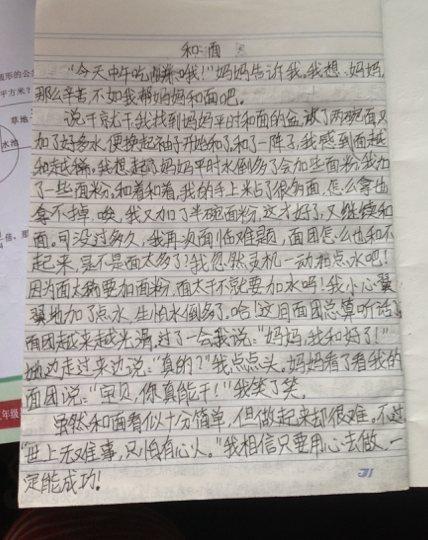 和面
"今天中午吃  哦!"妈妈告诉我。我想:妈妈
那么辛苦不如我帮妈妈和面吧。
说干就干,我找到妈妈平时和面的盆,放了两碗面又
加了好多水,便挽起袖子开始和了,和了一阵子,我感到面越
和越稀。我想起了妈妈平时水倒多了会加些面粉,我加
了一些面粉,和着和着,我的手上粘了很多面,怎么拿也
拿不掉,唉,我又加了半碗面粉,这才好了,又继续和
面。可没过多久,我再次面临难题,面团怎么也和不
起来,是不是面太多了?我忽然灵机一动加点水吧!
因为面太稀要加面粉,面太干不就要加水吗!我小心翼
翼地加了点水,生怕水倒多了。哈!这回面团总算听话了,
面团越来越光滑,过了一会我说:"妈妈,我和好了!"
她边走过来边说:"真的?"我点点头。妈妈看了看我的
面团说:"宝贝,你真能干!"我笑了笑。
虽然和面看似十分简单,但做起来却很难。不过
"世上无难事,只怕有心人。"我相信只要用心去做,一
定能成功!
草地
水池
年级